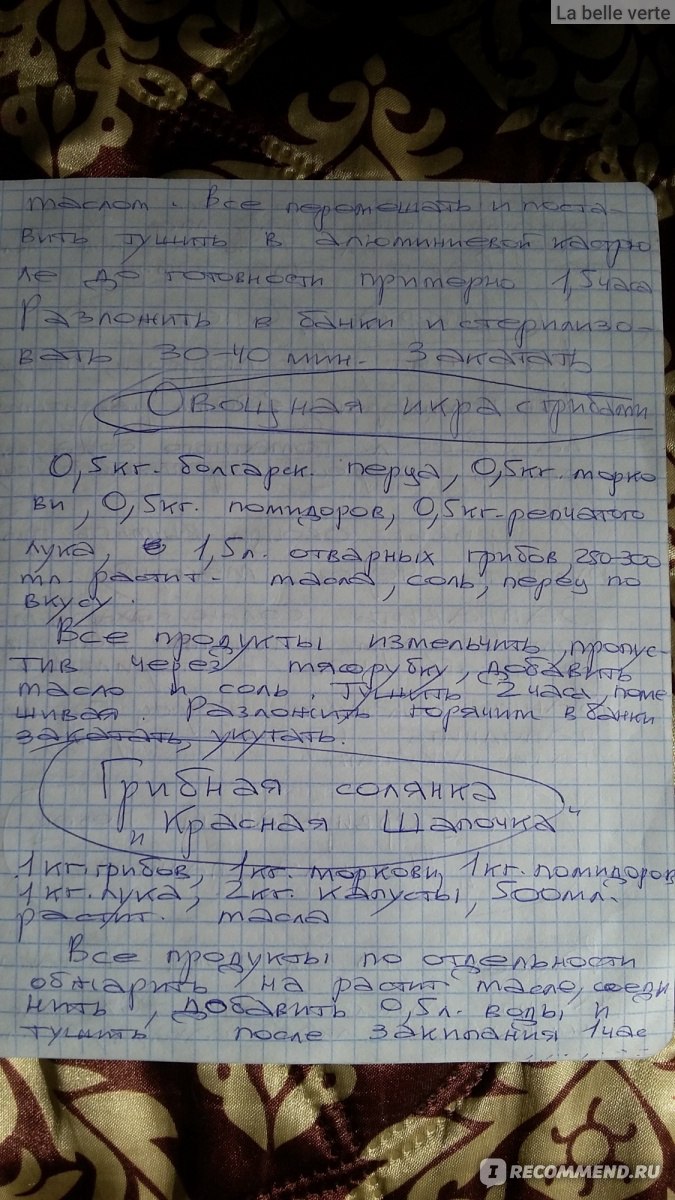 La belle verte
маслом. Все перемешать и поста-
вить тушить в алюминиевой кастрю
ле до готовности примерно 1,5 часа
Разложить в банки и стерилизо-
вать 30-40 мин. Закатать
Овощная икра с грибами
0,5 кг. болгарск. перца, 0,5 кг. морко
ви, 0,5 кг. помидоров, 0,5 кг. репчатого
лука, 1,5 л. отварных грибов, 250-300
мл. растит. масла, соль, перец по
вкусу.
Все продукты измельчить, пропус-
тив через мясорубку, добавить
масло и соль. Тушить 2 часа, поме
шивая. Разложить горячим в банки
закатать, укутать.
Грибная солянка
"Красная Шапочка"
1 кг. грибов, 1 кг. моркови, 1 кг. помидоров
1 кг. лука, 2 кг. капусты, 500 мл.
растит. масла
Все продукты по отдельности
обжарить на растит масле, соеди
нить, добавить 0,5 л. воды и
тушить после закипания 1 час
IRECOMMEND.RU